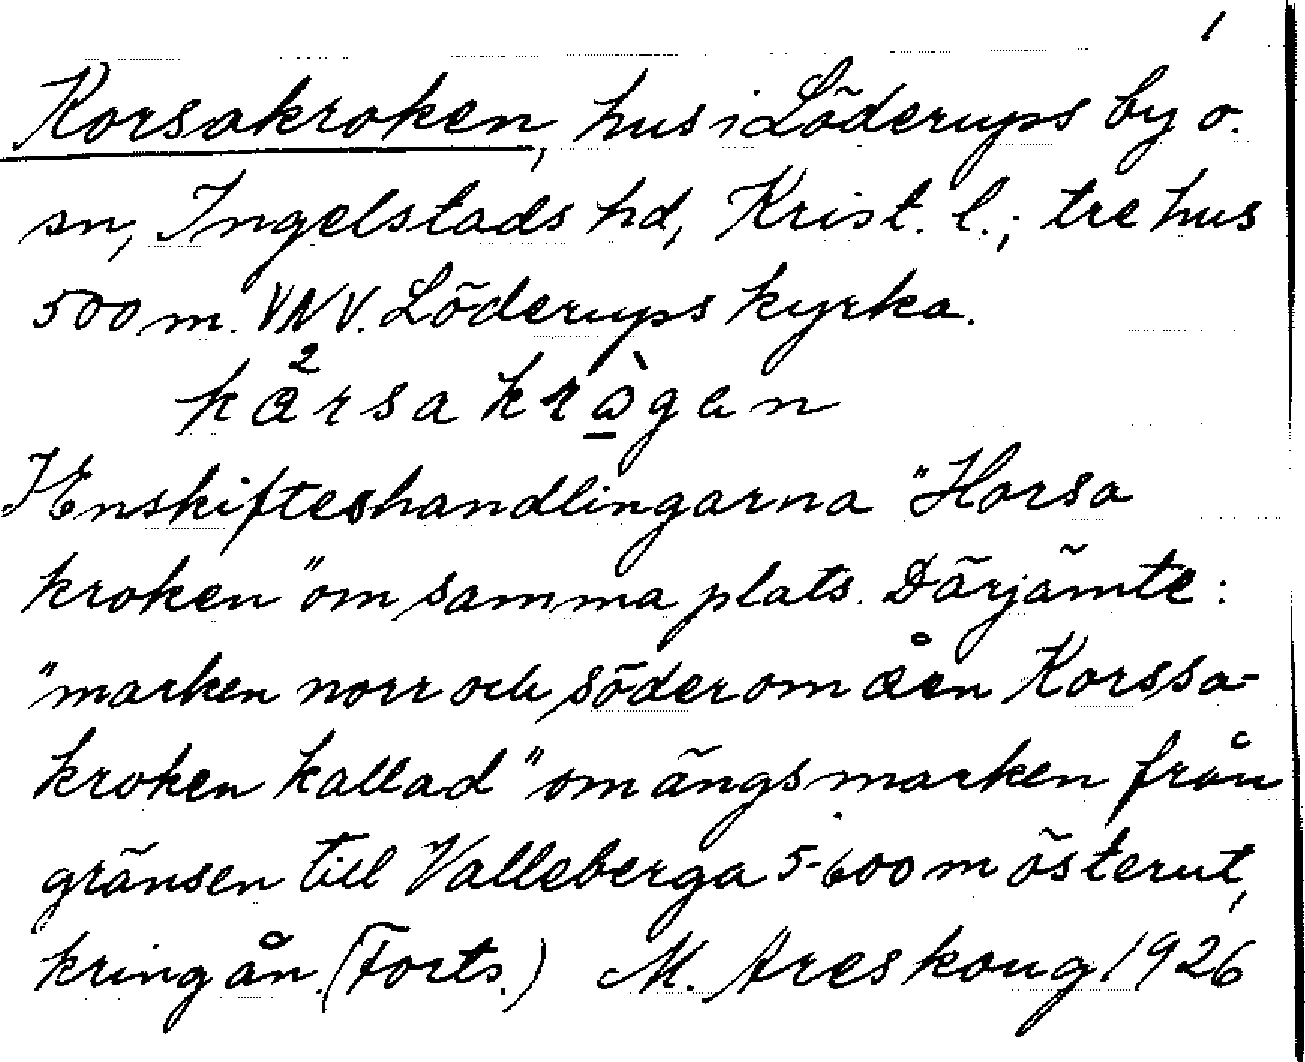 1
Korsakroken, hus i Löderups by o.
sn, Ingelstads hd, Krist. l.; tre hus
500 m. VNV. Löderups kyrka.
kå²rsakrò̱gan
I Enskifteshandlingarna "Horsa
kroken" om samma plats. Därjämte:
"marken norr och söder om åen Korssa-
kroken kallad" om ängsmarken från
gränsen till Valleberga 5-600 m österut,
kring ån. (Forts.) M. Areskoug 1926